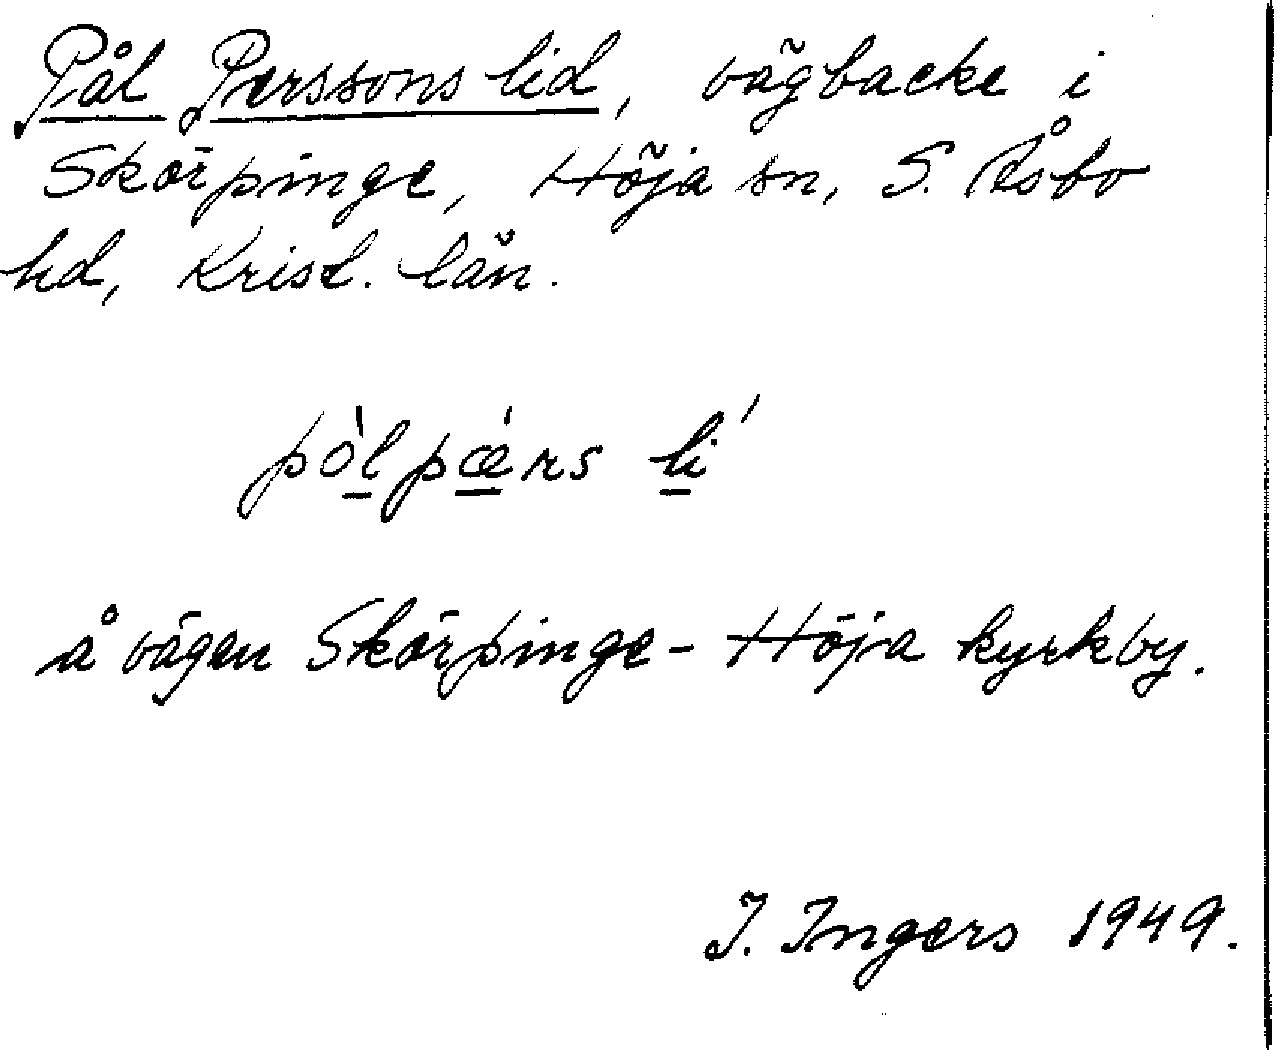 Pål Perssons lid, vägbacke i
Skörpinge, Höja sn, S. Åsbo
hd, Krist. län.
pòlpæ̀rs li´
å vägen Skörpinge - Höja kyrkby.
I. Ingers 1949.